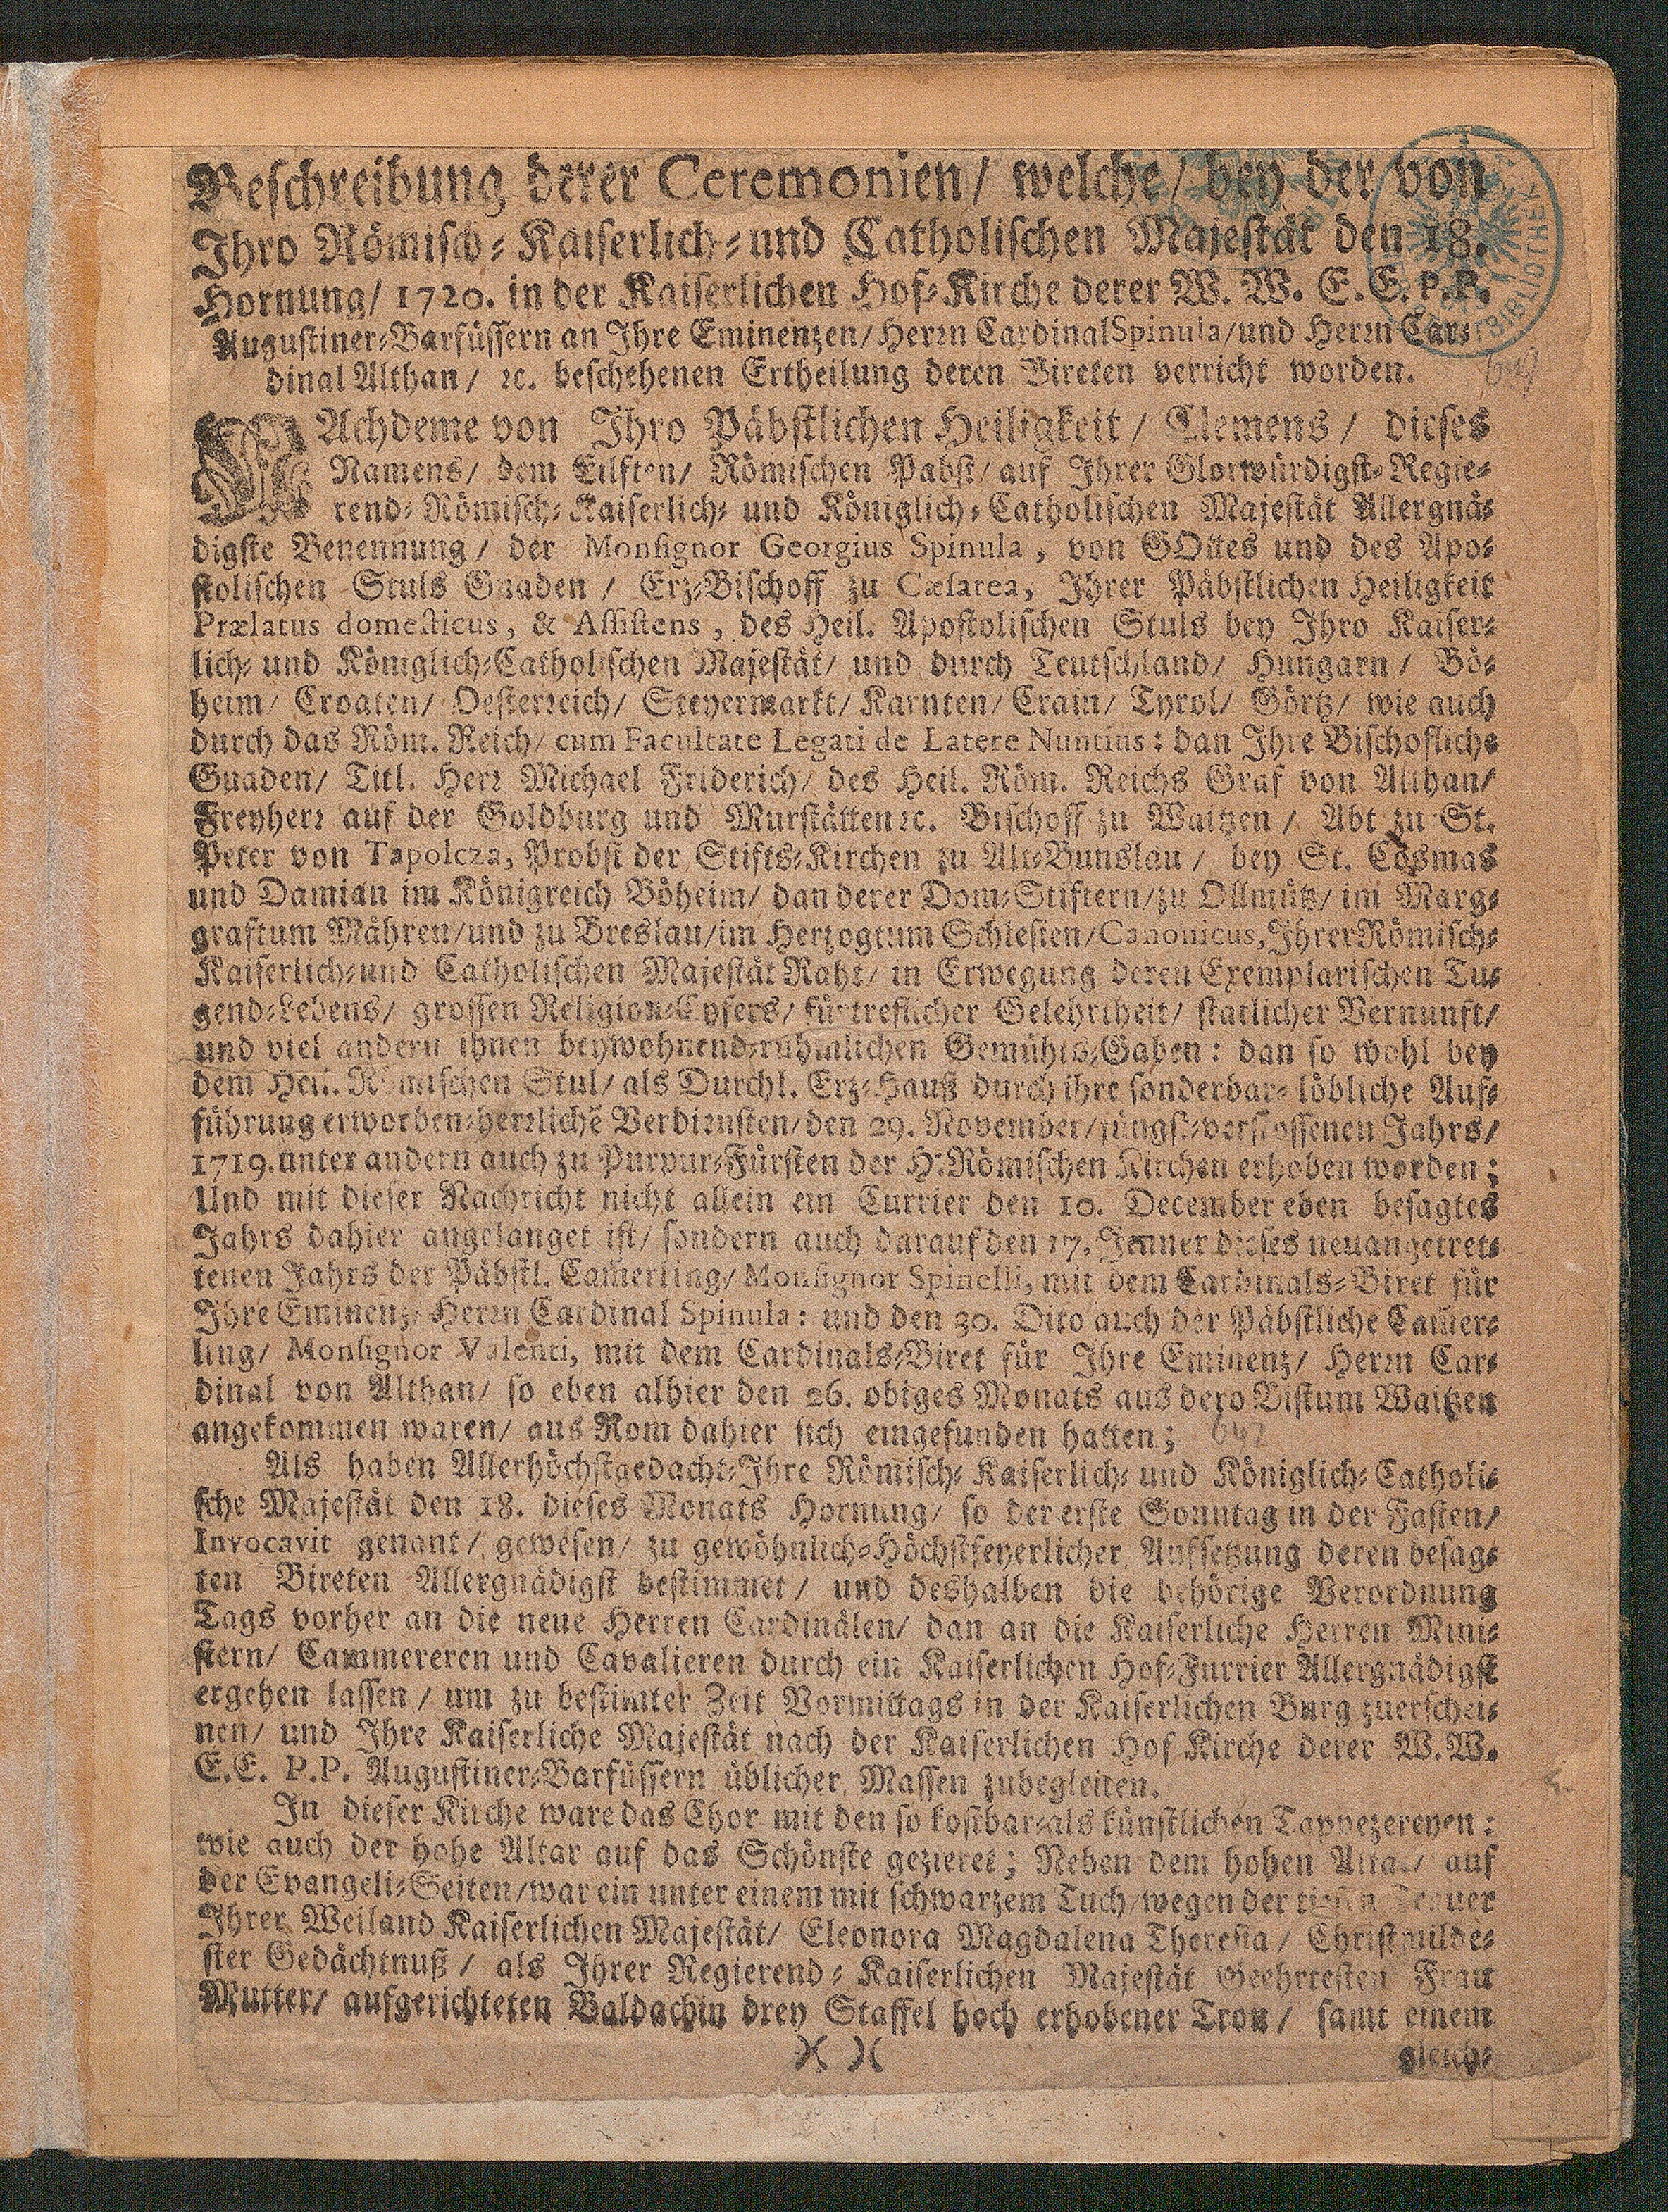 Beschreibung derer Ceremonien/ welche/ bey der von
Ihro Römisch-Kaiserlich-und Catholischen Majestät den 18.
Hornung/ 1720. in der Kaiserlichen Hof-Kirche derer W. W. E. E. P. P.
Augustiner-Barfüssern an Ihre Eminentzen/ Herrn Cardinal Spinula/ und Herrn Car-
dinal Althan/ ec. beschehenen Ertheilung deren Bireten verricht worden.
NAchdeme von Ihro Päbstlichen Heiligkeit/ Clemens/ dieses
Namens/ dem Eilften/ Römischen Pabst/ auf Ihrer Glorwürdigst-Regie-
rend-Römisch-Kaiserlich- und Königlich-Catholischen Majestät Allergnä-
digste Benennung/ der Monsignor Georgius Spinula, von GOttes und des Apo-
stolischen Stuls Gnaden / Erz-Bischoff zu Cæsarea, Ihrer Päbstlichen Heiligkeit
Prælatus domesticus, & Assistens, des Heil. Apostolischen Stuls bey Ihro Kaiser-
lich- und Königlich-Catholischen Majestät/ und durch Teutschland/ Hungarn / Bö-
heim/ Croaten/ Oesterreich/ Steyermarkt/ Karnten/ Crain/ Tyrol/ Görtz/ wie auch
durch das Röm. Reich/ cum Facultate Legati de Latere Nuntius: dan Ihre Bischofliche
Gnaden/ Titl. Herr Michael Friderich/ des Heil. Röm. Reichs Graf von Althan/
Freyherr auf der Goldburg und Murstätten ec. Bischoff zu Waitzen / Abt zu St.
Peter von Tapolcza, Probst der Stifts-Kirchen zu Alt-Bunslau / bey St. Cosmas
und Damian im Königreich Böheim/ dan derer Dom-Stiftern/ zu Ollmütz/ im Marg-
graftum Mähren/ und zu Breslau/ im Hertzogtum Schlesien/ Canonicus, Ihrer Römisch-
Kaiserlich-und Catholischen Majestät Raht/ in Erwegung deren Exemplarischen Tu-
gend-Lebens/ grossen Religion-Eyfers/ fürtreflicher Gelehrtheit/ statlicher Vernunft/
und viel andern ihnen beywohnend-rühmlichen Gemühts-Gaben: dan so wohl bey
dem Heil. Römischen Stul/ als Durchl. Erz-Hauß durch ihre sonderbar-löbliche Auf-
führung erworben-herrliche Verdiensten/ den 29. November/ jüngst-verflossenen Jahrs/
1719. unter andern auch zu Purpur-Fürsten der H. Römischen Kirchen erhoben worden;
Und mit dieser Nachricht nicht allein ein Currier den 10. December eben besagtes
Jahrs dahier angelanget ist/ sondern auch darauf den 17. Jenner dieses neuangetret-
tenen Jahrs der Päbstl. Cam̃erling/ Monsignor Spinelli, mit dem Cardinals-Biret für
Ihre Eminenz/ Herrn Cardinal Spinula: und den 30. Dito auch der Päbstliche Cam̃er-
ling/ Monsignor Valenti, mit dem Cardinals-Biret für Ihre Eminenz/ Herrn Car-
dinal von Althan/ so eben alhier den 26. obiges Monats aus dero Bistum Waitzen
angekommen waren/ aus Rom dahier sich eingefunden hatten;
Als haben Allerhöchstgedacht-Ihre Römisch-Kaiserlich- und Königlich-Catholi-
sche Majestät den 18. dieses Monats Hornung/ so der erste Sonntag in der Fasten/
Invocavit genant/ gewesen/ zu gewöhnlich-Höchstfeyerlicher Aufsetzung deren besag-
ten Bireten Allergnädigst bestimmet/ und deshalben die behörige Verordnung
Tags vorher an die neue Herren Cardinälen/ dan an die Kaiserliche Herren Mini-
stern/ Cammereren und Cavalieren durch ein Kaiserlichen Hof-Furrier Allergnädigst
ergehen lassen/ um zu bestimter Zeit Vormittags in der Kaiserlichen Burg zuerschei-
nen/ und Ihre Kaiserliche Majestät nach der Kaiserlichen Hof Kirche derer W. W.
E. E. P. P. Augustiner-Barfüssern üblicher Massen zubegleiten.
In dieser Kirche ware das Chor mit den so kostbar-als künstlichen Tappezereyen:
wie auch der hohe Altar auf das Schönste gezieret; Neben dem hohen Altar/ auf
der Evangeli-Seiten/ war ein unter einem mit schwarzem Tuch/ wegen der tiefen Trauer
Ihrer Weiland Kaiserlichen Majestät/ Eleonora Magdalena Theresia/ Christmilde-
ster Gedächtnuß/ als Ihrer Regierend-Kaiserlichen Majestät Geehrtesten Frau
Mutter/ aufgerichteten Baldachin drey Staffel hoch erhobener Tron/ samt einem
)( )(
gleich-